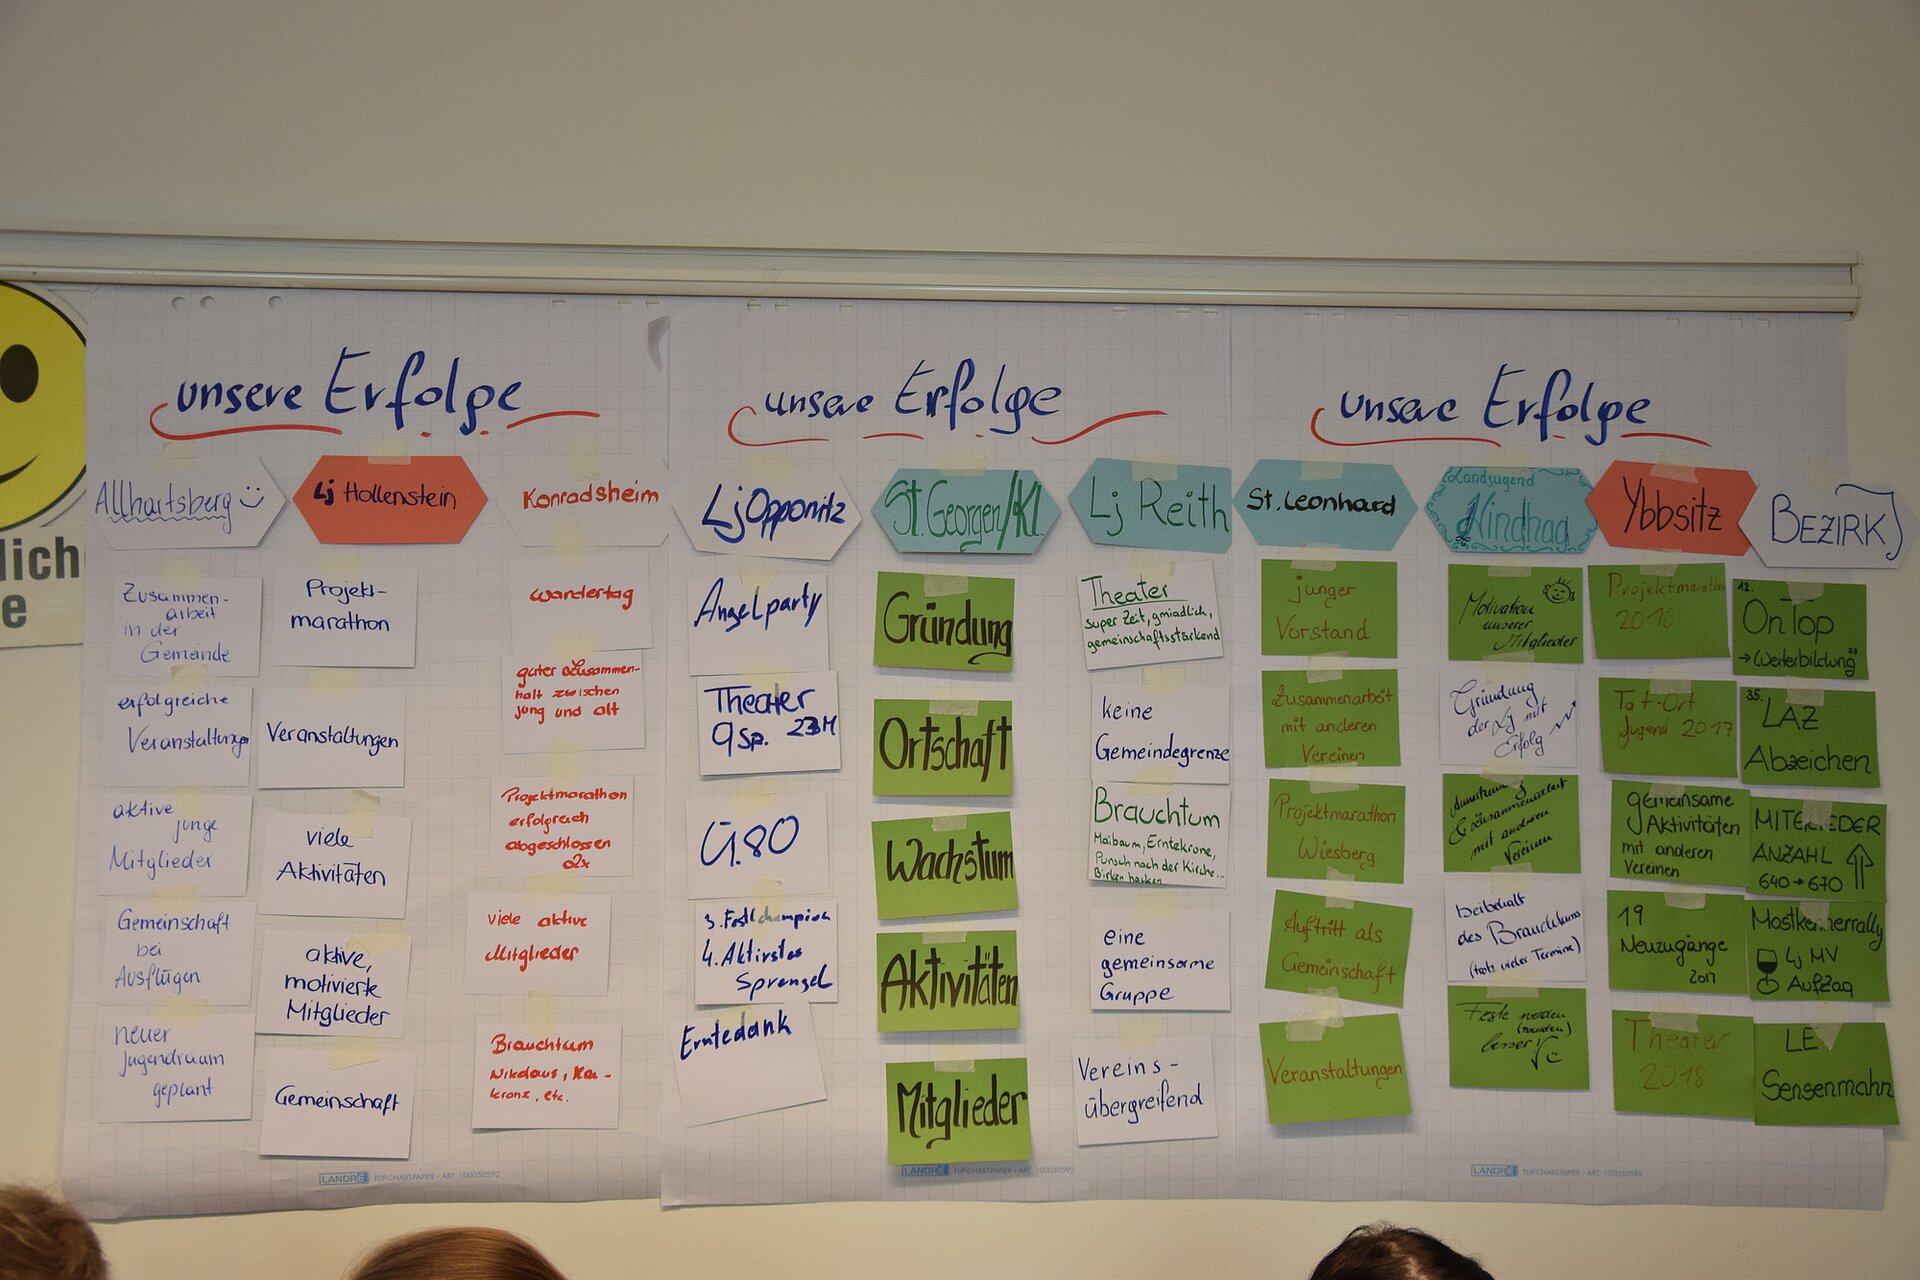 lich
e
unsere Erfolge
Allhartsberg
Zusammen-
arbeit
in der
Gemeinde
erfolgreiche
Veranstaltungen
aktive
junge
Mitglieder
Gemeinschaft
bei
Ausflügen
neuer
Jugendraum
geplant
Lj Hollenstein
Projekt-
marathon
Veranstaltungen
viele
Aktivitäten
aktive,
motivierte
Mitglieder
Gemeinschaft
Konradsheim
Wandertag
guter Zusammen-
halt zwischen
jung und alt
Projektmarathon
erfolgreich
abgeschlossen
02x
viele aktive
Mitglieder
Brauchtum
Nikolaus,
kranz, etc.
LANDRÉ FLIP-CHART-PAPIER · ART. 100050592
unsere Erfolge
Lj Opponitz
Angelparty
Theater
9 Sp. 23M
Ü.80
3. Festlchampion
4. Aktivstes
Sprengel
Erntedank
St. Georgen/Kl
Gründung
Ortschaft
Wachstum
Aktivitäten
Mitglieder
Lj Reith
Theater
super Zeit, gmiadlich,
gemeinschaftsstärkend
keine
Gemeindegrenze
Brauchtum
Maibaum, Erntekrone,
Punsch nach der Kirche...
Birken hacken
eine
gemeinsame
Gruppe
Vereins-
übergreifend
LANDRÉ FLIP-CHART-PAPIER · ART. 100050592
unsere Erfolge
St. Leonhard
junger
Vorstand
Zusammenarbeit
mit anderen
Vereinen
Projektmarathon
Wiesberg
Auftritt als
Gemeinschaft
Veranstaltungen
Landjugend
Windhag
Motivation
unserer
Mitglieder
Gründung
der Lj mit
Erfolg
Zusammenarbeit
mit anderen
Vereinen
Beibehalt
des Brauchtums
(trotz vieler Termine)
Feste werden
(wurden)
besser!
Ybbsitz
Projektmarathon
2016
Tat-Ort
Jugend 2017
gemeinsame
Aktivitäten
mit anderen
Vereinen
19
Neuzugänge
2017
Theater
2018
BEZIRK
12.
OnTop
→ Weiterbildung
35.
LAZ
Abzeichen
MITGLIEDER
ANZAHL
640→670
Mostkennerrally
Lj MV
Aufzag
LE
Sensenmahn
LANDRÉ FLIP-CHART-PAPIER · ART. 100050592